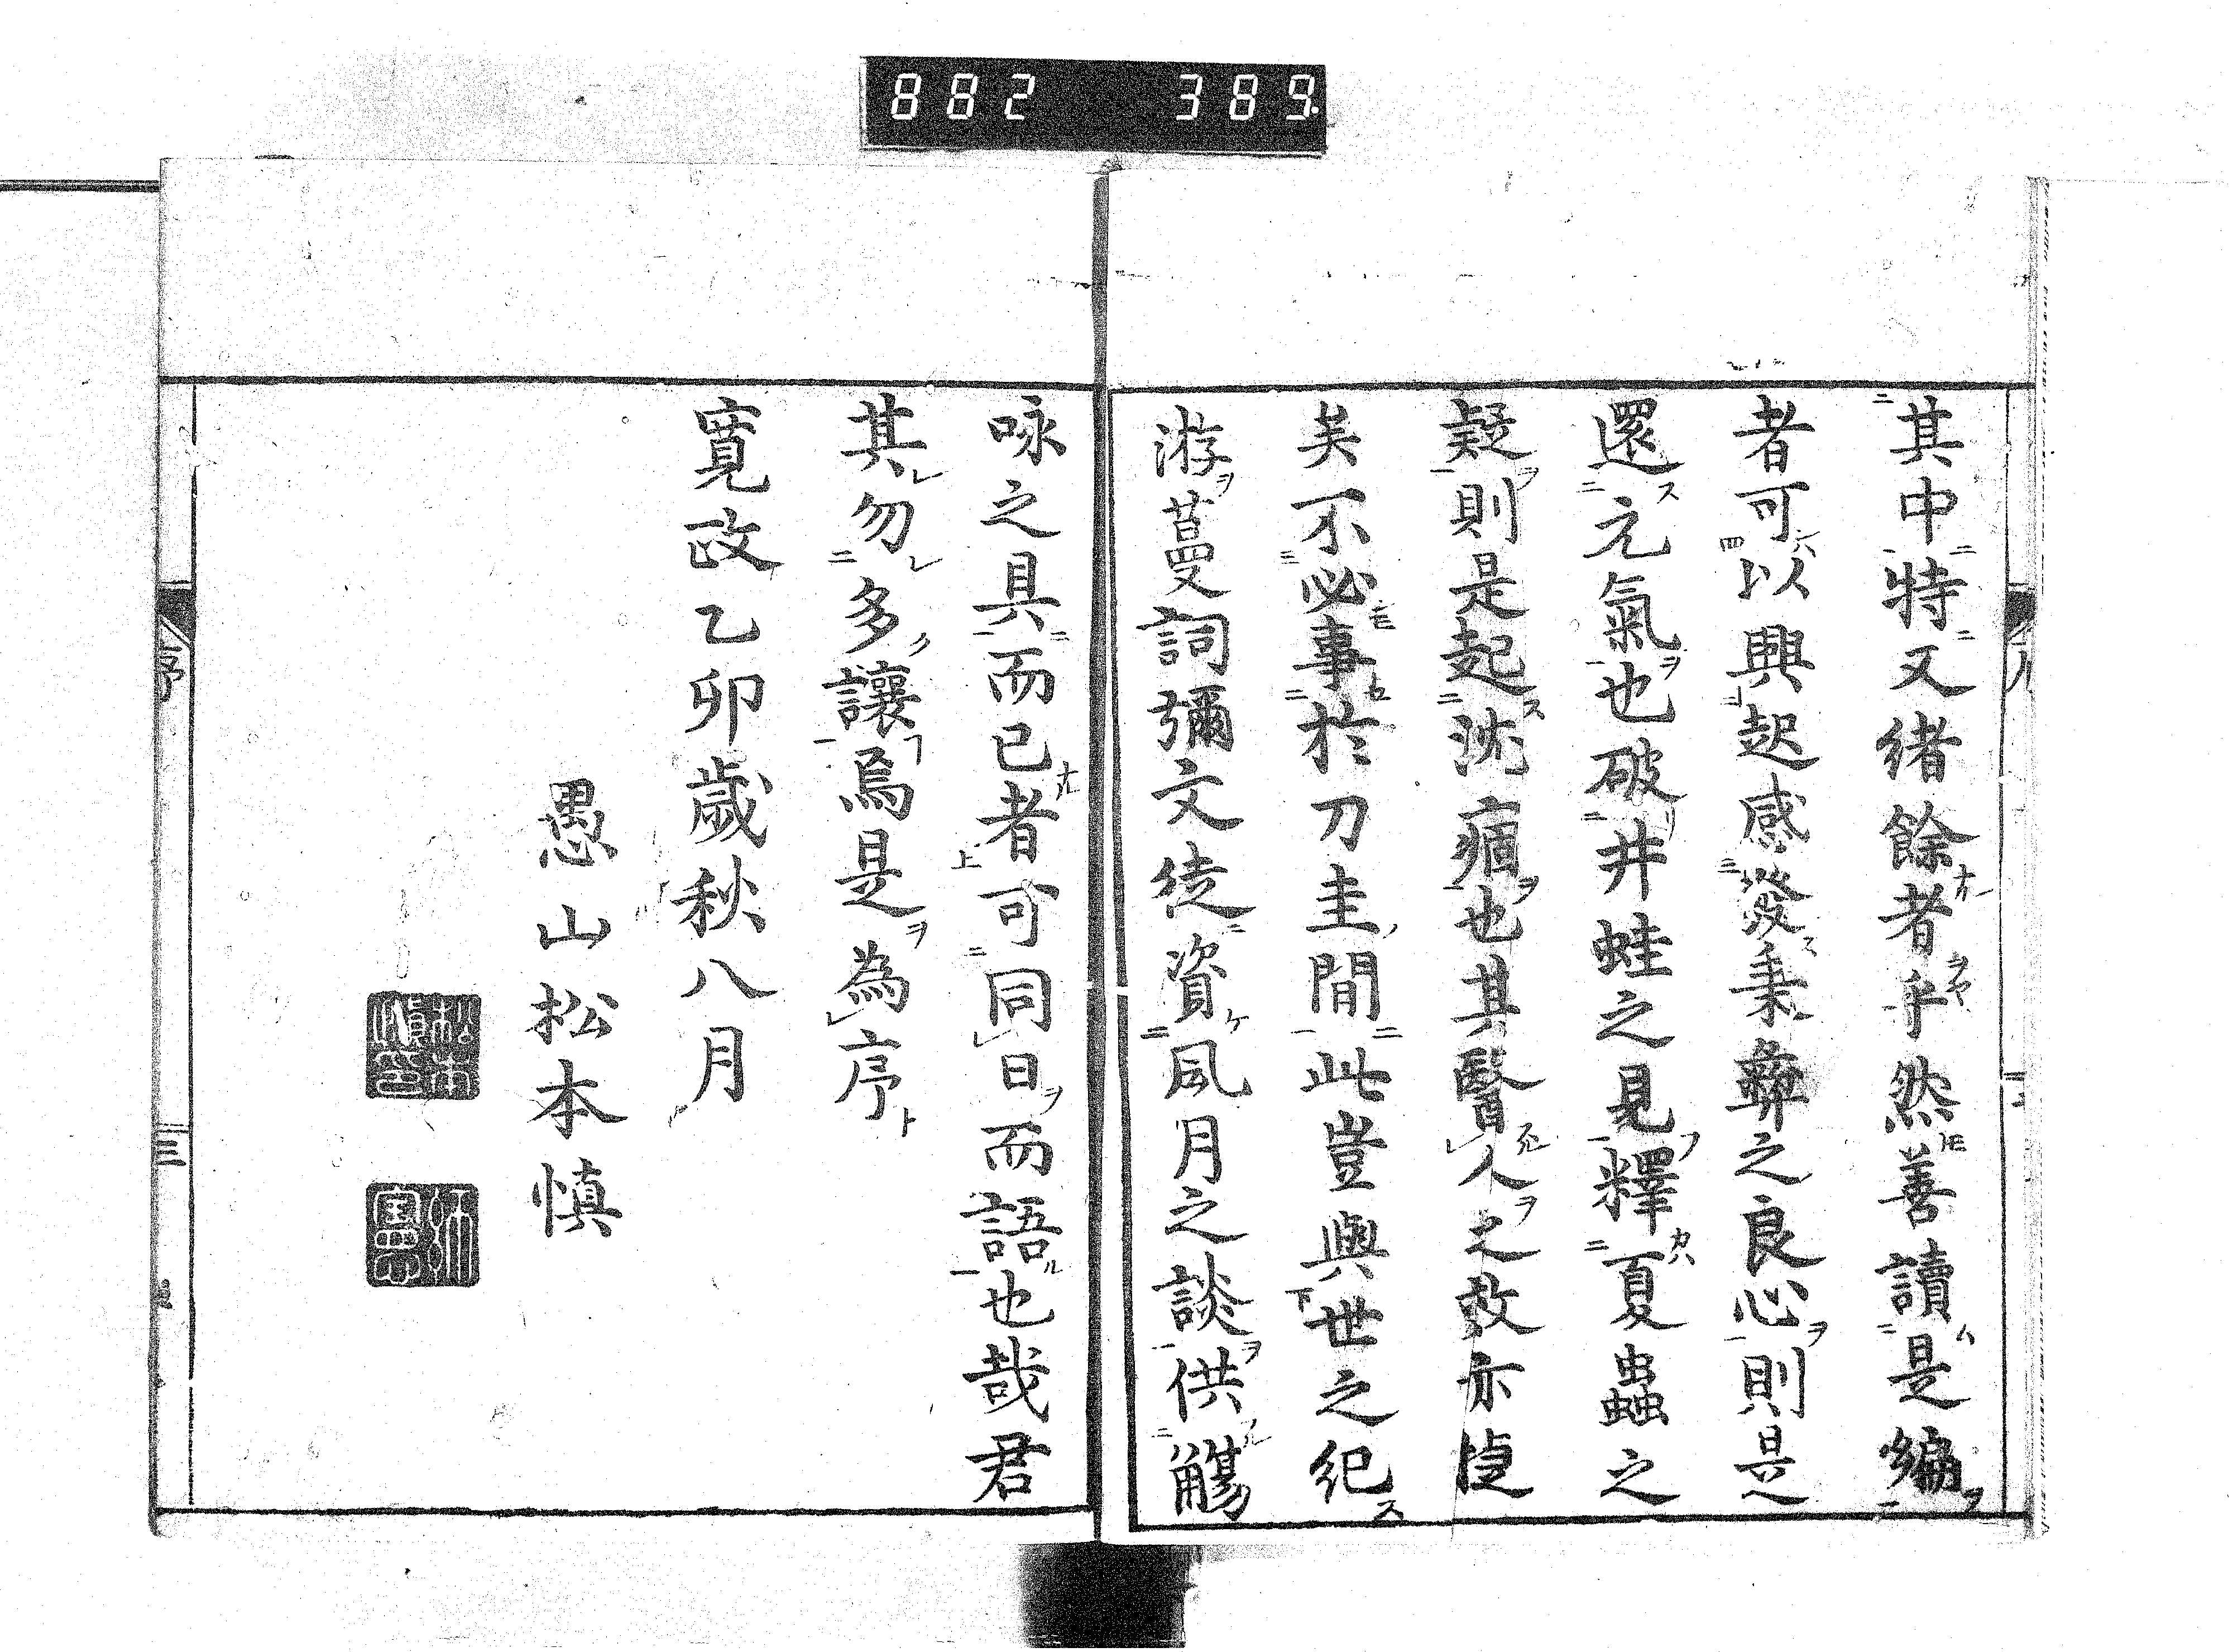 882 389.
其中特又緒餘者乎然善讀是編
者可以興起感發秉彝之良心則是
還元氣也破井蛙之見釋夏蟲之
疑則是起沈痼也其醫人之效亦捷
矣不必事於刀圭間此豈與世之紀
游蔓詞彌文徒資風月之談供觴
咏之具而已者可同日而語也哉君
其勿多讓焉是為序
寛政乙卯歳秋八月
愚山松本慎
松本慎印
序
三